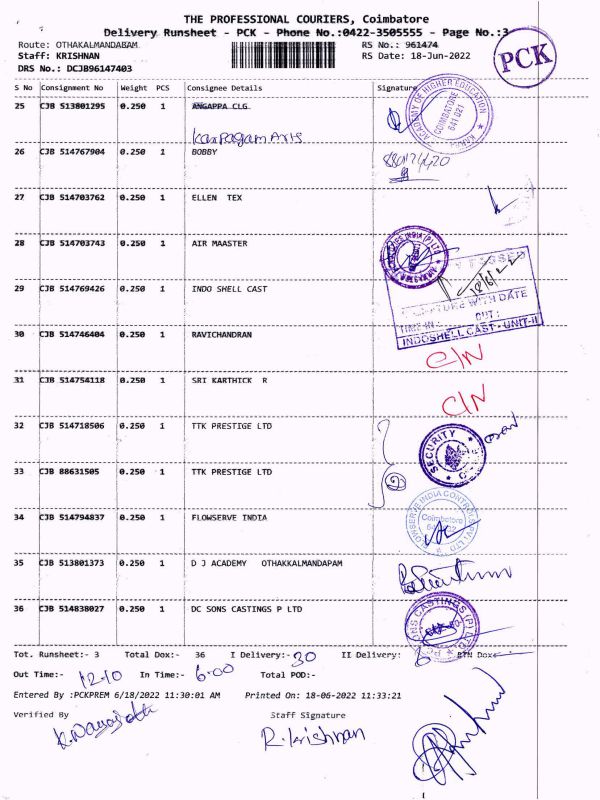 THE PROFESSIONAL COURIERS, Coimbatore
Delivery Runsheet - PCK - Phone No.:0422-3505555 - Page No.:3
PCK
Route: OTHAKALMANDABAM RS No.: 961474
Staff: KRISHNAN RS Date: 18-Jun-2022
DRS No.: DCJB96147403
S No Consignment No Weight PCS Consignee Details Signature
25 CJB 513801295 0.250 1 ANGAPPA CLG
Karpagam Arts
ACADEMY OF HIGHER EDUCATION
COIMBATORE
641 021
26 CJB 514767904 0.250 1 BOBBY
27 CJB 514703762 0.250 1 ELLEN TEX
28 CJB 514703743 0.250 1 AIR MAASTER
29 CJB 514769426 0.250 1 INDO SHELL CAST
18/6/22
SIGNATURE WITH DATE
TIME IN: OUT:
INDOSHELL CAST - UNIT-II
30 CJB 514746404 0.250 1 RAVICHANDRAN C/N
31 CJB 514754118 0.250 1 SRI KARTHICK R C/N
32 CJB 514718506 0.250 1 TTK PRESTIGE LTD
SECURITY
33 CJB 88631505 0.250 1 TTK PRESTIGE LTD
34 CJB 514794837 0.250 1 FLOWSERVE INDIA
FLOWSERVE INDIA CONTROLS PVT LTD
Coimbatore
35 CJB 513801373 0.250 1 D J ACADEMY OTHAKKALMANDAPAM
36 CJB 514838027 0.250 1 DC SONS CASTINGS P LTD
SONS CASTINGS (P) LTD
Tot. Runsheet:- 3 Total Dox:- 36 I Delivery:- 30 II Delivery: 6 BTN Dox
Out Time:- 12-10 In Time:- 6-00 Total POD:-
Entered By :PCKPREM 6/18/2022 11:30:01 AM Printed On: 18-06-2022 11:33:21
Verified By Staff Signature
R. Krishnan